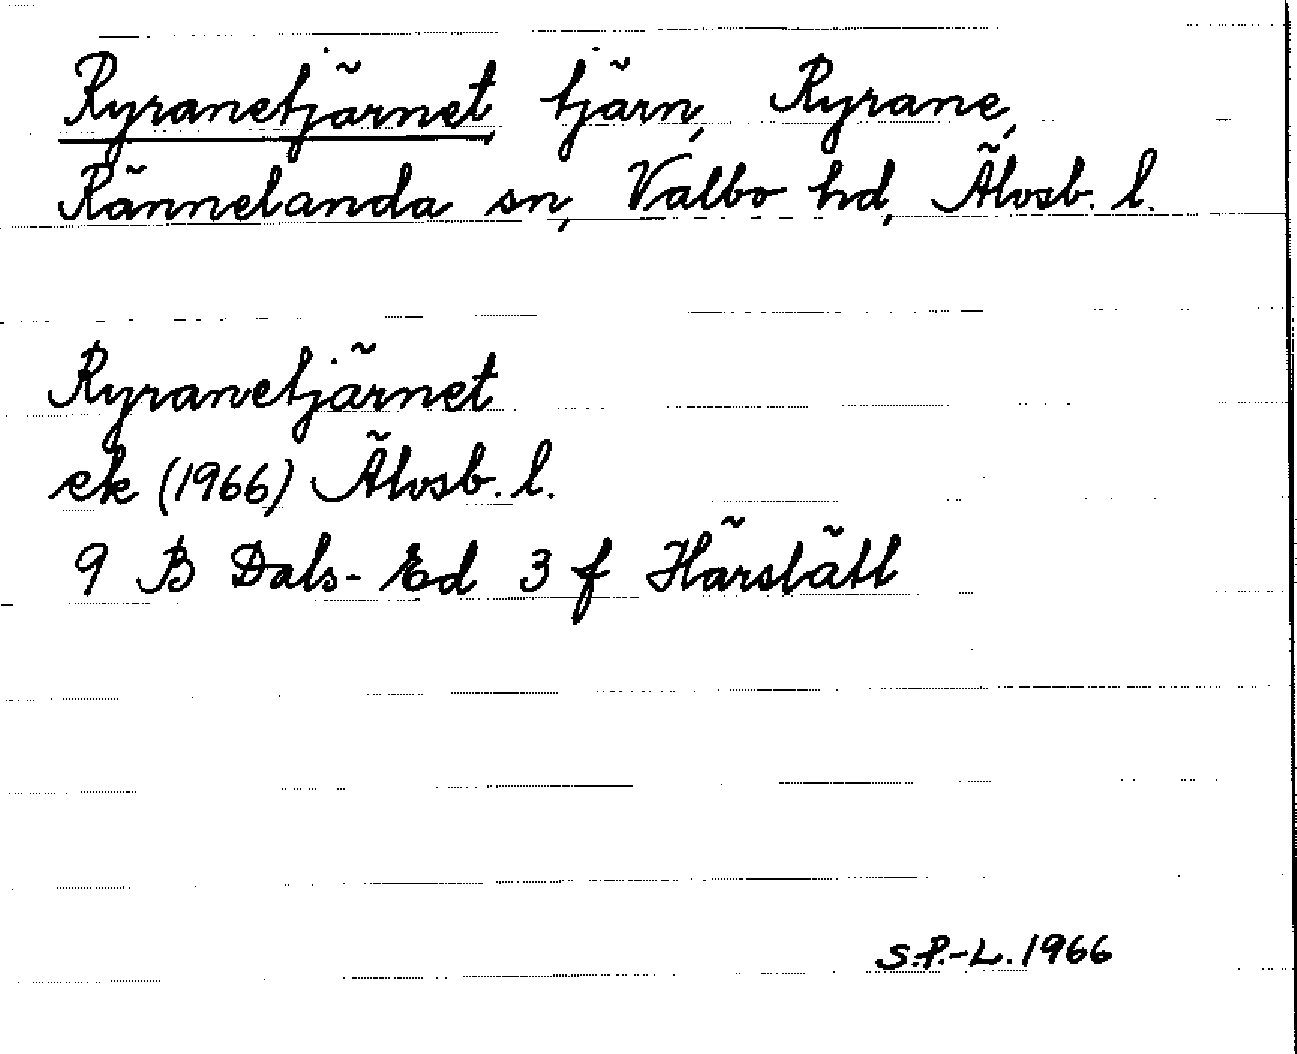 Ryranetjärnet, tjärn, Ryrane,
Rännelanda sn, Valbo hd, Älvsb. l.
Ryranetjärnet
ek (1966) Älvsb. l.
9 B Dals-Ed 3 f Härslätt
S.P.-L. 1966